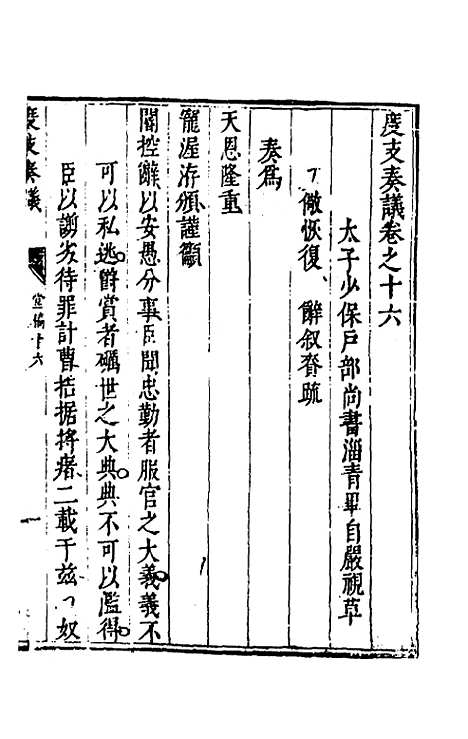 度支奏議卷之十六
太子少保戶部尚書淄青畢自嚴視草
儆恢復辭叙賚疏
奏爲
天恩隆重
寵渥洊頒謹籲
閽控辭以安愚分事臣聞忠勤者服官之大義義不
可以私逃爵賞者礪世之大典典不可以濫得
臣以謭劣待罪計曹拮据捋瘏二載于兹奴
度支奏議
一